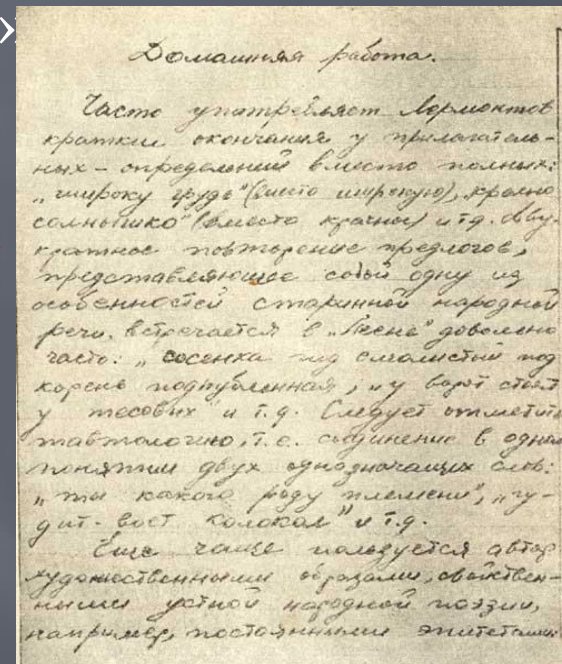 Домашняя работа.
Часто употребляет Лермонтов
краткие окончания у прилагатель-
ных - определений вместо полных:
„широку грудь" (вместо широкую), „красно
солнышко" (вместо красное) и т.д. Дву-
кратное повторение предлогов,
представляющее собой одну из
особенностей старинной народной
речи, встречается в „Песне" довольно
часто: „сосенка под смолистый под
корень подрубленная", „у ворот стоят
у тесовых" и т.д. Следует отметить
тавтологию, т.е. соединение в одном
понятии двух однозначащих слов:
„ты какого роду племени", „гу-
дит-воет колокол" и т.д.
Еще чаще пользуется автор
художественными образами, свойствен-
ными устной народной поэзии,
например, постоянными эпитетами